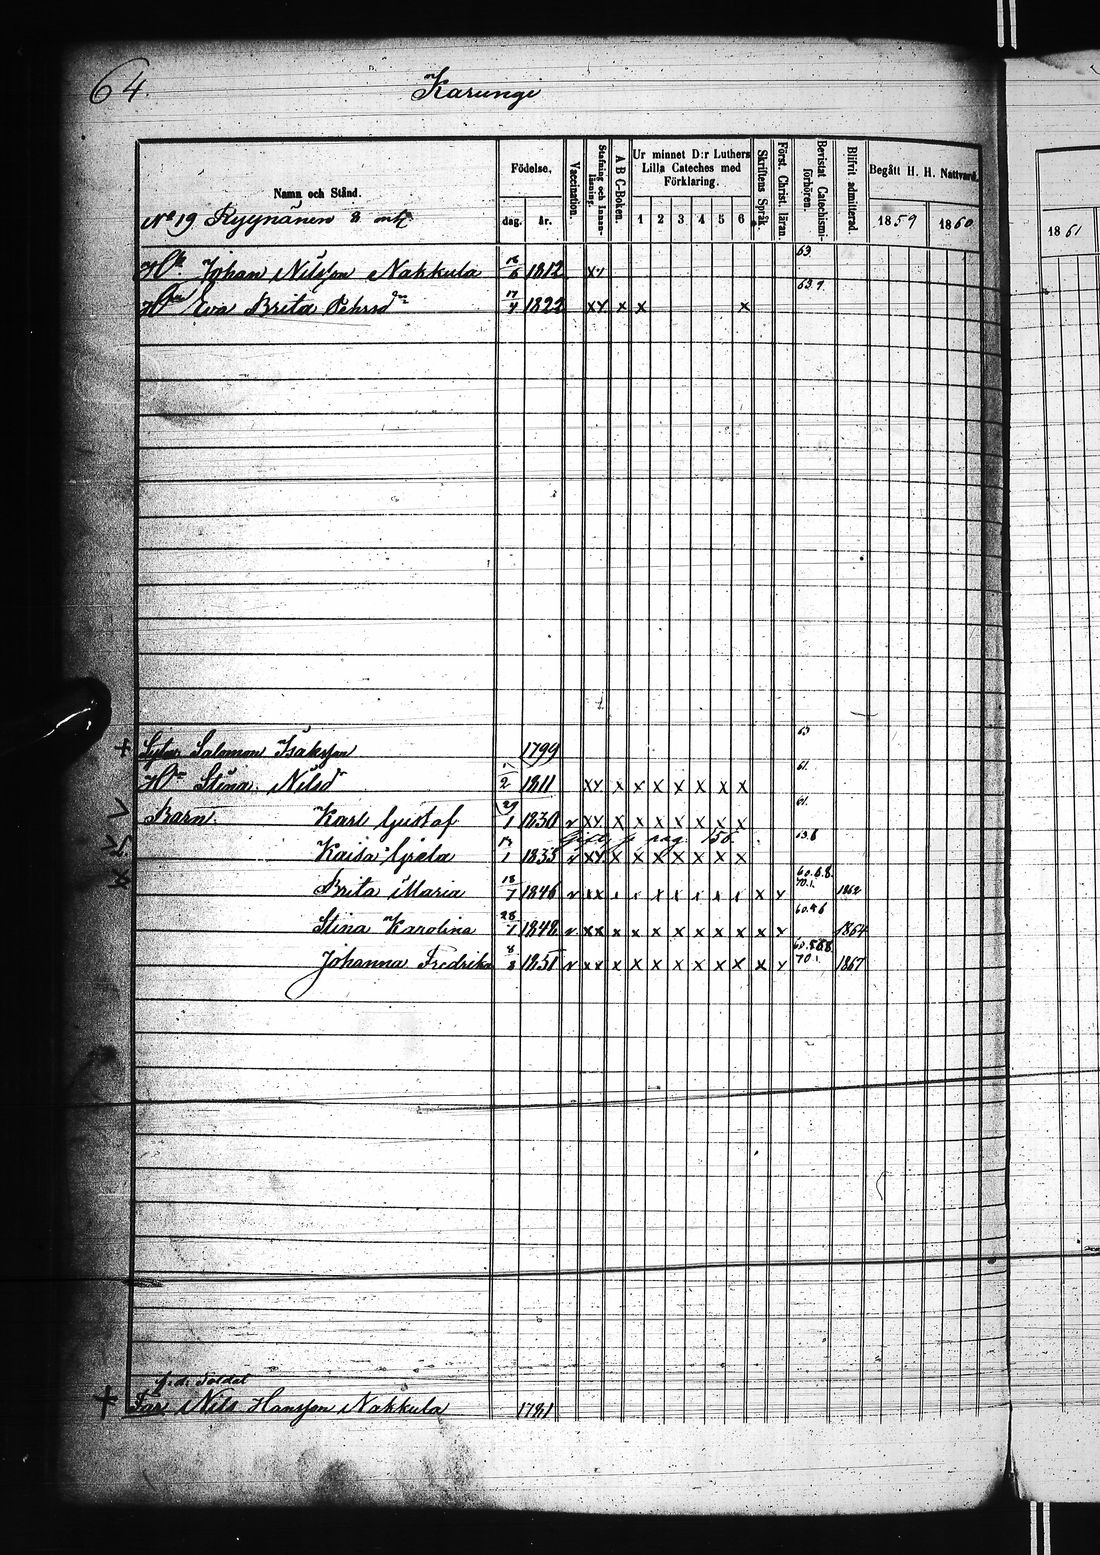 64.
Karungi
Namn och Stånd.
Födelse,
dag. år.
Vaccination.
Stafning och innan-läsning.
A B C-Boken.
Ur minnet D:r Luthers
Lilla Cateches med
Förklaring.
1 2 3 4 5 6
Skriftens Språk.
Först. Christ. läran.
Bevistat Catechismi-förhören.
Blifvit admitterad
Begått H. H. Nattvard.
1859 1860
1861
No 19 Ryynänen
Johan Nilsson Nakkula 16/6 1812 xy 63
Eva Brita Pehrsdr 17/4 1822 xy x x x 63.9
+ Salomon Isaksson 1799 63
Hu Stina Nilsdr 1811 xy x x x x x x x 61.
Barn: Karl Gustaf 29/1 1830 v xy x x x x x x x 61.
Gift, p. pag. 156.
Kaisa Greta 1/1 1835 v xy x x x x x x x
Brita Maria 18/7 1846 v xx x x x x x x x x y 60.6.8. 70.1. 1862
Stina Karolina 28/1 1848 v xx x x x x x x x x y 1864
Johanna Fredrika 8/8 1851 v xx x x x x x x x x y 70.1. 1867
f.d. Soldat
+ Far Nils Hansson Nakkula 1781